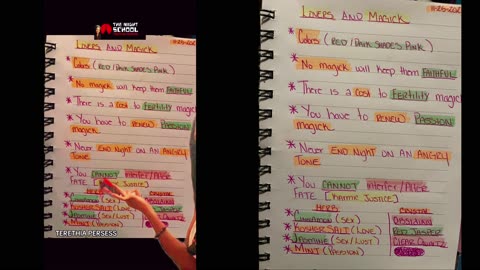 THE NIGHT
SCHOOL
LOVERS AND MAGICK
* Colors (RED/PINK SHADES PINK)
* No magick will keep them FAITHFUL
* There is a cost to FERTILITY magick
* You have to RENEW PASSION
magick
* Never END NIGHT ON AN ANGRY
TONE
* You CANNOT interfer/Alter
FATE [Justice]
HERB CRYSTAL
* Cinnamon (SEX) OBSIDIAN
* KOSHER SALT (LOVE)
* Jasmine (Sex/Lust)
* MINT (PASSION)
TERETHIA PERSESS
LOVERS AND MAGICK
* Colors (RED/PINK SHADES PINK)
* No magick will keep them FAITHFUL
* There is a cost to FERTILITY magic
* You have to RENEW PASSION
magick
* Never END NIGHT ON AN ANGRY
TONE
* You CANNOT interfer/Alter
FATE [Karmic Justice]
HERB CRYSTAL
* Cinnamon (SEX) OBSIDIAN
* KOSHER SALT (LOVE) RED JASPER
* Jasmine (Sex/Lust) CLEAR QUARTZ
* MINT (PASSION)